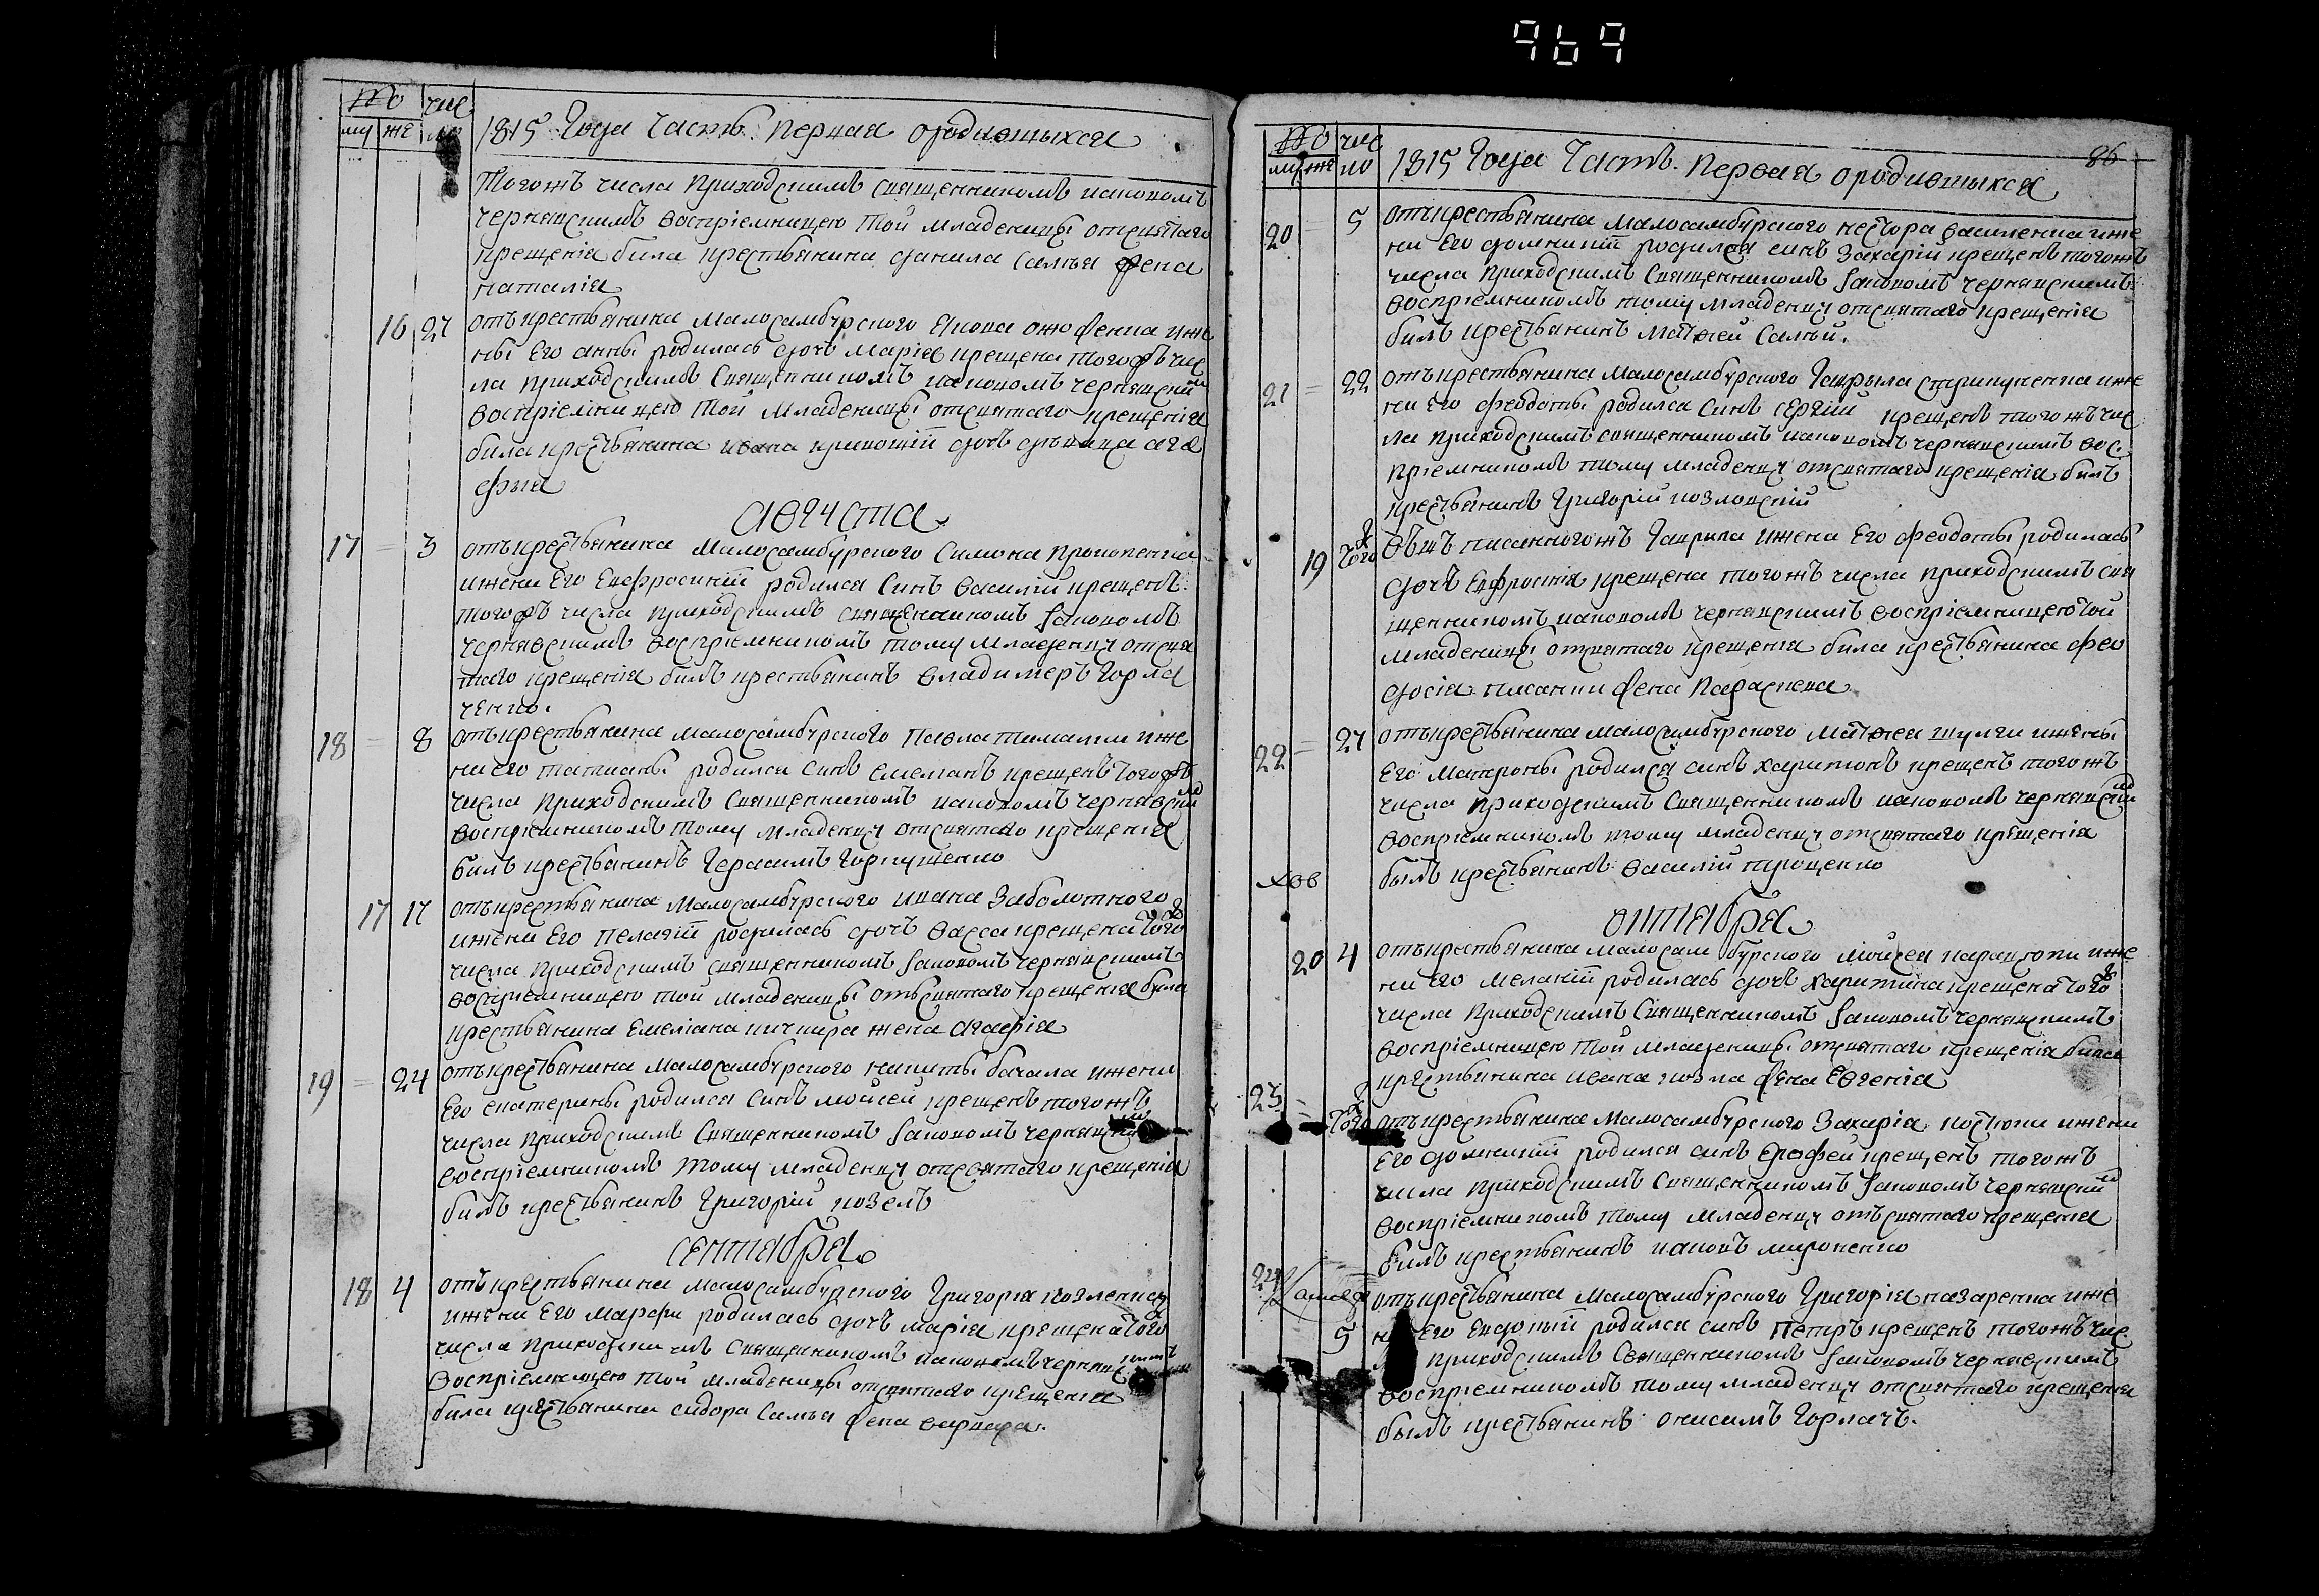 969
що чис
му же ло
1815 Года Часть Первая ородившихся
тогожъ числа приходскимъ священникомъ иаковомъ
чернявскимъ восприемницею той младеницы отсвятаго
крещенія била крестьянина данила Салыя жена
наталія
16 27 отъ крестьянина малосамбурского якова
ны Его анны родилась дочь Марія крещена тогожъ чис
ла приходскимъ Священникомъ иаковомъ чернявский
восприемницею той младеницы отсвятаго крещенія
била крестьянина ивана дочь девица ага
фыя
августа
17 = 3 отъ крестьянина Малосамбурского Симона Прокопенка
ижени Его Евфросиніи родился Синъ василій крещенъ
тогожъ числа приходскимъ священникомъ Іаковомъ
чернявскимъ восприемникомъ тому младенцу отсвя
таго крещенія билъ крестьянинъ владимеръ Горла
ченко.
18 = 8 отъ крестьянина малосамбурского Павла иже
ни его татианы родился синъ емелианъ крещенъ тогожъ
числа Приходскимъ Священникомъ иаковомъ чернявский
восприемникомъ тому младенцу отсвятаго крещенія
билъ крестьянинъ Герасимъ
17 17 отъ крестьянина Малосамбурского ивана Заболотного
ижени Его Пелагіи родилась дочь васса крещена того
числа приходскимъ священникомъ Іаковомъ чернявскимъ
восприемницею той младеницы отъсвятаго крещенія била
крестьянина Емеліана кичкира жена агафія
19 = 24 отъ крестьянина Малосамбурского никиты бачала ижени
Его екатерины родился Синъ мойсей крещенъ тогожъ
числа приходскимъ Священникомъ Іаковомъ чернявский
восприемникомъ тому младенцу отсвятаго крещенія
билъ крестьянинъ Григорій козелъ
сентября
18 4 отъ крестьянина малосамбурского Григорія козленка
ижени Его марфи родилась дочь марія крещена того
числа приходскимъ Священникомъ иаковомъ чернявскимъ
восприемницею той младеницы отсвятаго крещенія
била крестьянина сидора Салыя жена варвара.
що чис
му же ло
1815 Года Часть. Первая ородившихся
86
20 = 5 отъ крестьянина малосамбурского нестора василенка иже
ни Его домникіи родился синъ Захарій крещенъ тогожъ
числа приходскимъ Священникомъ Іаковомъ чернявскимъ
восприемникомъ тому младенцу отсвятаго крещенія
билъ крестьянинъ матфей Салый.
21 = 22 отъ крестьянина малосамбурского Гаврыла иже
ни Его феодоты родился Синъ сергий крещенъ тогожъ чис
ла приходскимъ священникомъ иаковомъ чернявскимъ вос
приемникомъ тому младенцу отсвятаго крещенія билъ
крестьянинъ Григорій козловскій
19 того вышъ писанногожъ Гаврила ижени Его феодоты родилась
дочь Евфросінія крещена тогожъ числа приходскимъ свя
щенникомъ иаковомъ чернявскимъ восприемницею той
младеницы отсвятаго крещенія била крестьянина фео
досія писанки жена Параскева
22 = 27 отъ крестьянина малосамбурского матфея шулги ижены
Его Матроны родился синъ харитонъ крещенъ тогожъ
числа приходскимъ Священникомъ иаковомъ чернявский
восприемникомъ тому младенцу отсвятаго крещенія
былъ крестьянинъ василій троценко
октября
20 4 отъ крестьянина малосамбурского мойсея иже
ни Его меланіи родилась дочь харитина крещена того
числа приходскимъ Священникомъ Іаковомъ чернявскимъ
восприемницею той младеницы отсвятаго крещенія била
крестьянина ивана козла жена евгенія
23 = того отъ крестьянина Малосамбурского Захарія костюки ижени
Его домникіи родился синъ Ерофей крещенъ тогожъ
числа приходскимъ Священникомъ Іаковомъ чернявский
восприемникомъ тому младенцу отъсвятаго крещенія
билъ крестьянинъ иаковъ мироненко
24 отъ крестьянина малосамбурского Григорія назаренка иже
5 Его Евдокіи родился синъ Петръ крещенъ тогожъ чис
приходскимъ Священникомъ Іаковомъ чернявскимъ
восприемникомъ тому младенцу отсвятаго крещенія
былъ крестьянинъ онисимъ Горлачъ.